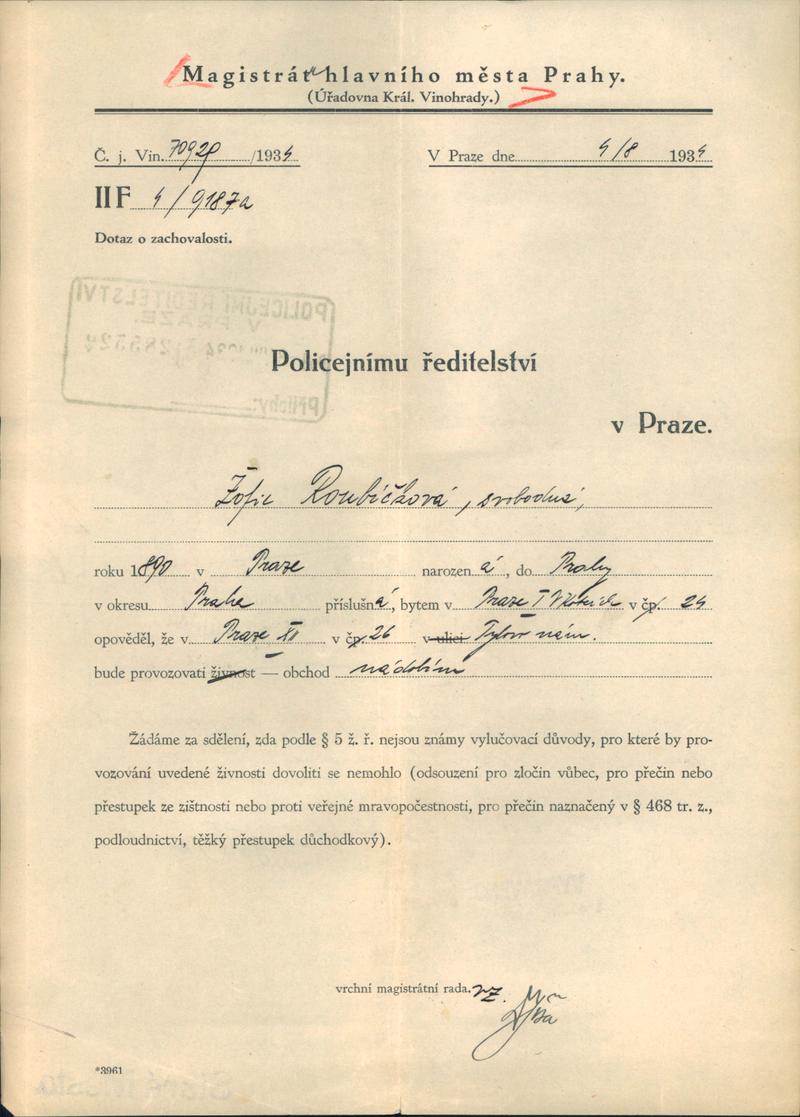 Magistrát hlavního města Prahy.
(Úřadovna Král. Vinohrady.)
Č. j. Vin. /1934
V Praze dne 4/8 1934
II F 4/9187a
Dotaz o zachovalosti.
POLICEJNÍ ŘEDITELSTVÍ
V PRAZE.
Přílohy:
Policejnímu ředitelství
v Praze.
Žofie Roubíčková, svobodná,
roku 1890 v Praze narozená, do Prahy
v okresu Praha příslušná, bytem v Praze I V kotcích v čp. 24
opověděl, že v Praze XII v čp. 26 v ulici Tylovo nám.
bude provozovati živnost — obchod nádobím
Žádáme za sdělení, zda podle § 5 ž. ř. nejsou známy vylučovací důvody, pro které by pro-
vozování uvedené živnosti dovoliti se nemohlo (odsouzení pro zločin vůbec, pro přečin nebo
přestupek ze zištnosti nebo proti veřejné mravopočestnosti, pro přečin naznačený v § 468 tr. z.,
podloudnictví, těžký přestupek důchodkový).
vrchní magistrátní rada.
*3961